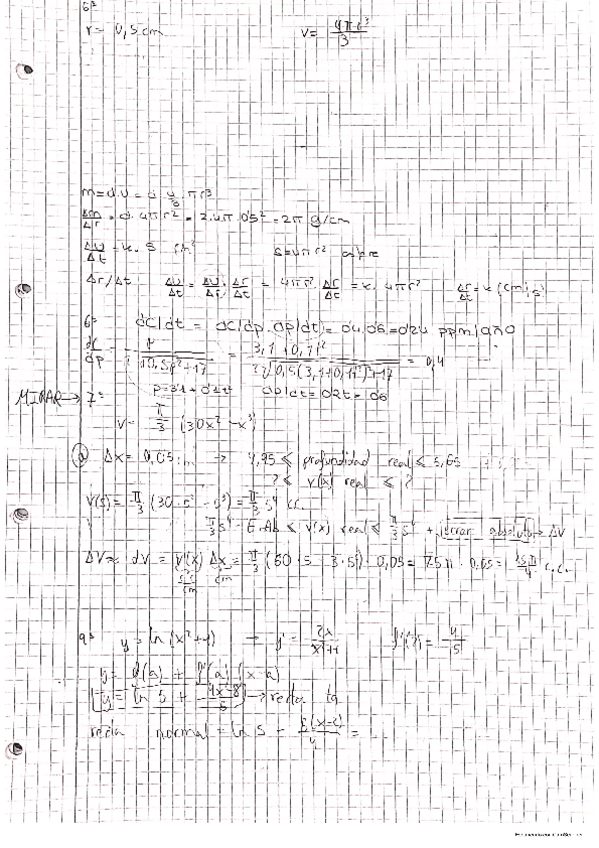 6º
r = 0,5 cm V = 4πr³/3
m = d.v = d. 4/3 πr³
Δm/Δr = d.4πr² = 2.4π.05² = 2π g/cm
Δv/Δt = k. S cm² S = 4πr²
Δr/Δt Δv/Δt = Δv/Δr . Δr/Δt = 4πr² . Δr/Δt = k. 4πr² Δr/Δt = k (cm/s)
6º dC/dt = dC/dp . dp/dt) = 04.06 = 024 ppm/año
dC/dp = = 0,4
MIRAR → 7º p = 31 + 01t² dp/dt = 02t = 06
V = π/3 (30x² - x³)
a) Δx = 0,05 ... → 4,95 ≤ profundidad real ≤ 5,05
? ≤ v(x) real ≤ ?
V(5) = π/3 (30.5² - 5³) = π/3 5⁴ c.c.
π/3 5⁴ - E.Ab ≤ V(x) real ≤ π/3 5⁴ + error absoluto → ΔV
ΔV ≈ dV = V'(x) Δx = π/3 (60.5 - 3.5²) . 0,05 = 75π . 0,05 = 15π/4 c.c.
c.c./cm cm
9º y = ln (x²+1) → y' = 2x/x²+1 f'(2) = 4/5
y = f(a) + f'(a) (x-a)
y = ln 5 + 4x-8/5 → recta tg
recta normal = ln 5 - 5(x-2)/4 =